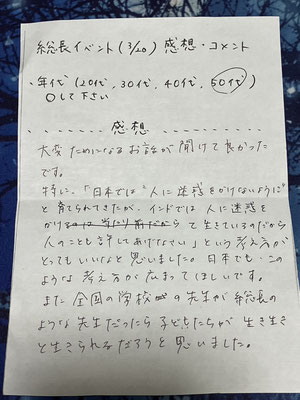 総長イベント(3/20) 感想・コメント
・年代(20代, 30代, 40代, 50代)
○して下さい
感想
大変ためになるお話が聞けて良かった
です。
特に、「日本では"人に迷惑をかけないように"
と育てられてきたが、インドでは人に迷惑を
かけるのは当たり前だからて生きているのだから
人のことも許してあげなさい」という考え方が
とってもいいなと思いました。日本でも、この
ような考え方が広まってほしいです。
また全国の学校の先生が総長の
ような先生だったら子ども達が生き生き
と生きられるだろうと思いました。